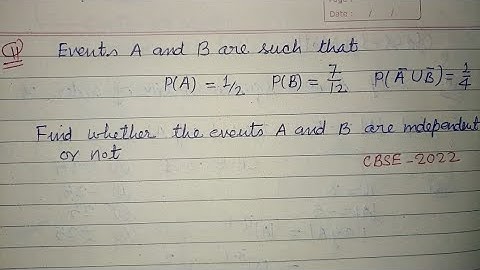 Page :
Date : / /
Q Events A and B are such that
P(A) = 1/2 P(B) = 7/12 P(Ā ∪ B̄) = 1/4
Find whether the events A and B are independent
or not
CBSE - 2022